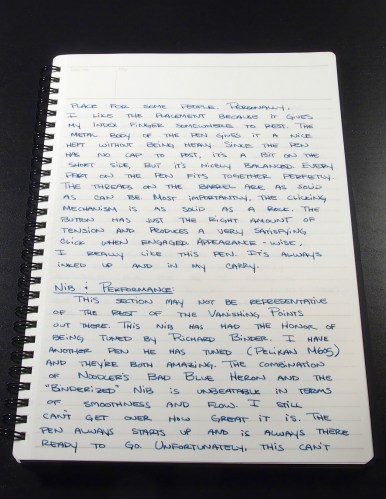 PLACE FOR SOME PEOPLE. PERSONALLY,
I LIKE THE PLACEMENT BECAUSE IT GIVES
MY INDEX FINGER SOMEWHERE TO REST. THE
METAL BODY OF THE PEN GIVES IT A NICE
HEFT WITHOUT BEING HEAVY. SINCE THE PEN
HAS NO CAP TO POST, IT'S A BIT ON THE
SHORT SIDE, BUT IT'S NICELY BALANCED. EVERY
PART ON THE PEN FITS TOGETHER PERFECTLY.
THE THREADS ON THE BARREL ARE AS SOLID
AS CAN BE. MOST IMPORTANTLY, THE CLICKING
MECHANISM IS AS SOLID AS A ROCK. THE
BUTTON HAS JUST THE RIGHT AMOUNT OF
TENSION AND PRODUCES A VERY SATISFYING
CLICK WHEN ENGAGED. APPEARANCE-WISE,
I REALLY LIKE THIS PEN. IT'S ALWAYS
INKED UP AND IN MY CARRY.
NIB & PERFORMANCE:
THIS SECTION MAY NOT BE REPRESENTATIVE
OF THE REST OF THE VANISHING POINTS
OUT THERE. THIS NIB HAS HAD THE HONOR OF
BEING TUNED BY RICHARD BINDER. I HAVE
ANOTHER PEN HE HAS TUNED (PELIKAN M605)
AND THEY'RE BOTH AMAZING. THE COMBINATION
OF NOODLER'S BAD BLUE HERON AND THE
"BINDERIZED" NIB IS UNBEATABLE IN TERMS
OF SMOOTHNESS AND FLOW. I STILL
CAN'T GET OVER HOW GREAT IT IS. THE
PEN ALWAYS STARTS UP AND IS ALWAYS THERE
READY TO GO. UNFORTUNATELY, THIS CAN'T